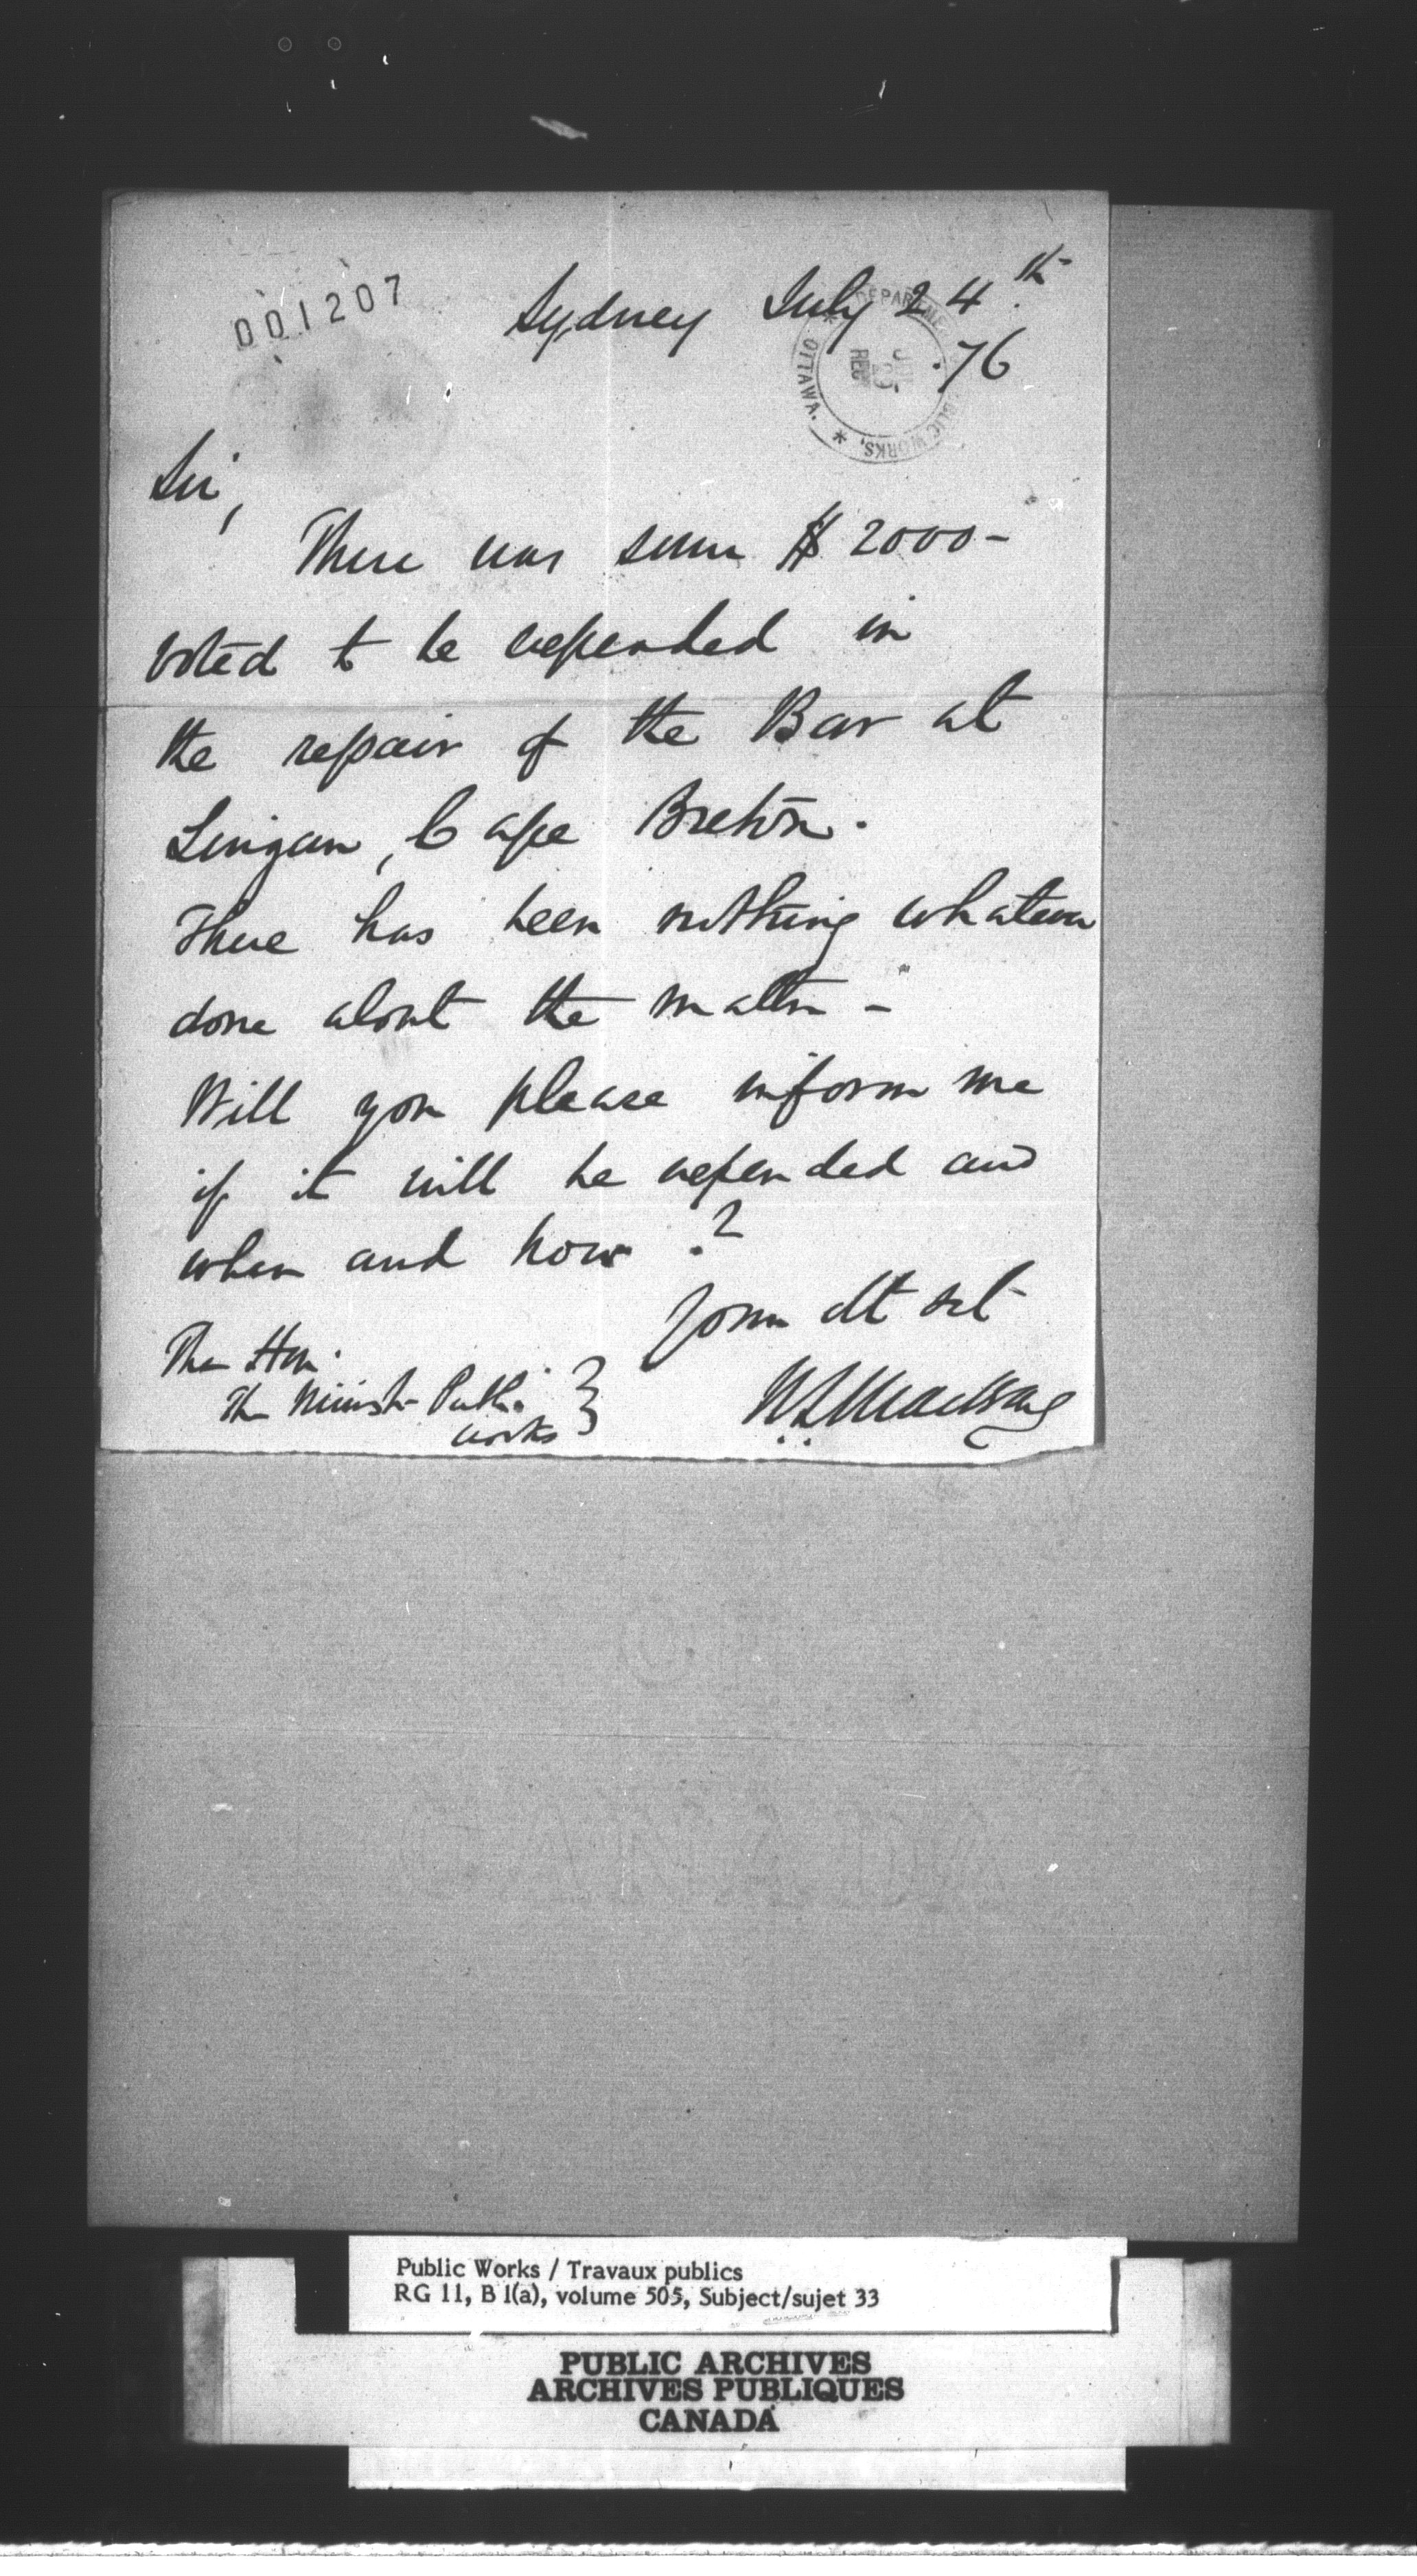 001207
Sydney July 24th
.76
DEPARTMENT PUBLIC WORKS, OTTAWA.
Sir,
There was some $2000-
voted to be expended in
the repair of the Bar at
Lingan, Cape Breton.
There has been nothing whatever
done about the matter -
Will you please inform me
if it will be expended and
when and how?
Your obt svt
The Hon.
The Minister Public
works
Public Works / Travaux publics
RG 11, B 1(a), volume 505, Subject/sujet 33
PUBLIC ARCHIVES
ARCHIVES PUBLIQUES
CANADA